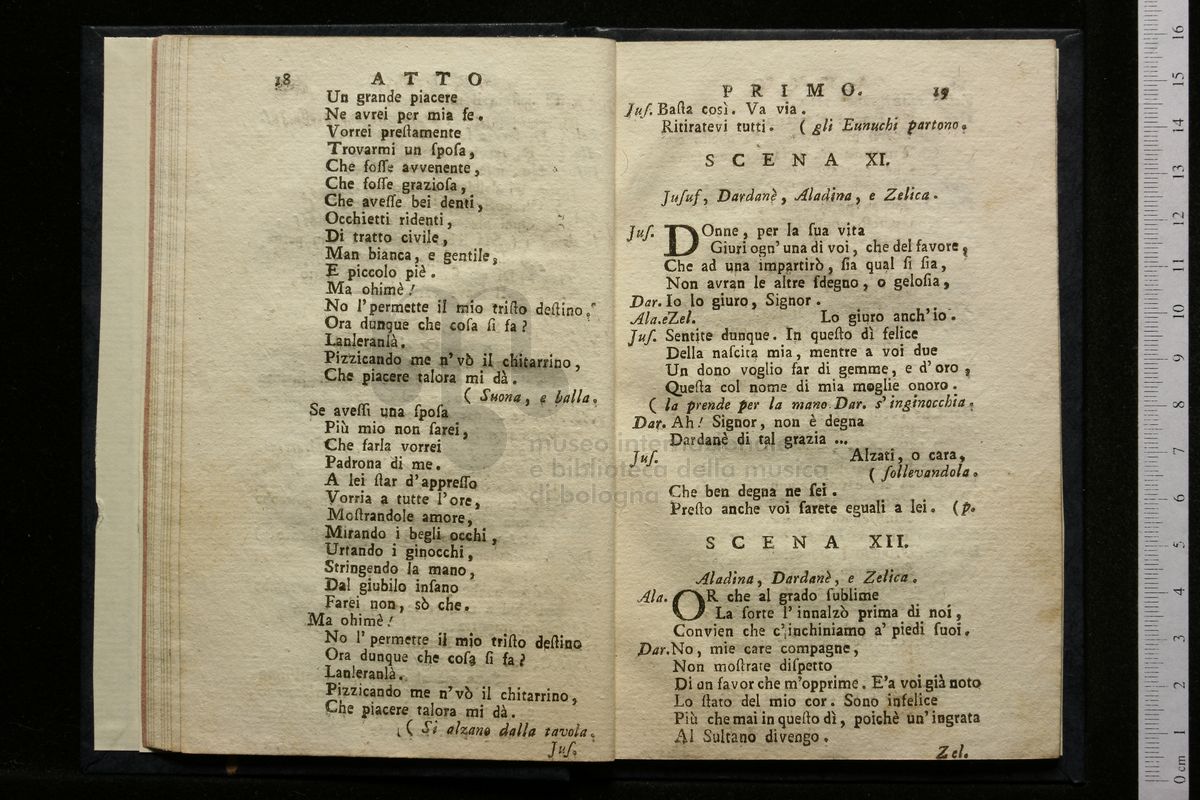 18 ATTO
Un grande piacere
Ne avrei per mia fe.
Vorrei preſtamente
Trovarmi un ſpoſa,
Che foſſe avvenente,
Che foſſe grazioſa,
Che aveſſe bei denti,
Occhietti ridenti,
Di tratto civile,
Man bianca, e gentile,
E piccolo piè.
Ma ohimè!
No l'permette il mio triſto deſtino.
Ora dunque che coſa ſi fa?
Lanleranlà.
Pizzicando me n'vò il chitarrino,
Che piacere talora mi dà.
( Suona, e balla.
Se aveſſi una ſpoſa
Più mio non ſarei,
Che farla vorrei
Padrona di me.
A lei ſtar d'appreſſo
Vorria a tutte l'ore,
Moſtrandole amore,
Mirando i begli occhi,
Urtando i ginocchi,
Stringendo la mano,
Dal giubilo inſano
Farei non, sò che.
Ma ohimè!
No l'permette il mio triſto deſtino
Ora dunque che coſa ſi fa?
Lanleranlà.
Pizzicando me n'vò il chitarrino,
Che piacere talora mi dà.
( Si alzano dalla tavola.
Juſ.
PRIMO. 19
Juſ. Baſta così. Va via.
Ritiratevi tutti. ( gli Eunuchi partono.
SCENA XI.
Juſuf, Dardanè, Aladina, e Zelica.
Juſ. DOnne, per la ſua vita
Giuri ogn'una di voi, che del favore,
Che ad una impartirò, ſia qual ſi ſia,
Non avran le altre ſdegno, o geloſia,
Dar. Io lo giuro, Signor.
Ala.eZel. Lo giuro anch'io.
Juſ. Sentite dunque. In queſto dì felice
Della naſcita mia, mentre a voi due
Un dono voglio far di gemme, e d'oro,
Queſta col nome di mia moglie onoro.
( la prende per la mano Dar. s'inginocchia.
Dar. Ah! Signor, non è degna
Dardanè di tal grazia ...
Juſ. Alzati, o cara,
( ſollevandola.
Che ben degna ne ſei.
Preſto anche voi ſarete eguali a lei. (p.
SCENA XII.
Aladina, Dardanè, e Zelica.
Ala. OR che al grado ſublime
La ſorte l'innalzò prima di noi,
Convien che c'inchiniamo a' piedi ſuoi.
Dar. No, mie care compagne,
Non moſtrate diſpetto
Di un favor che m'opprime. E'a voi già noto
Lo ſtato del mio cor. Sono infelice
Più che mai in queſto dì, poichè un'ingrata
Al Sultano divengo.
Zel.
museo internazionale
e biblioteca della musica
di bologna
16
15
14
13
12
11
10
9
8
7
6
5
4
3
2
1
0 cm